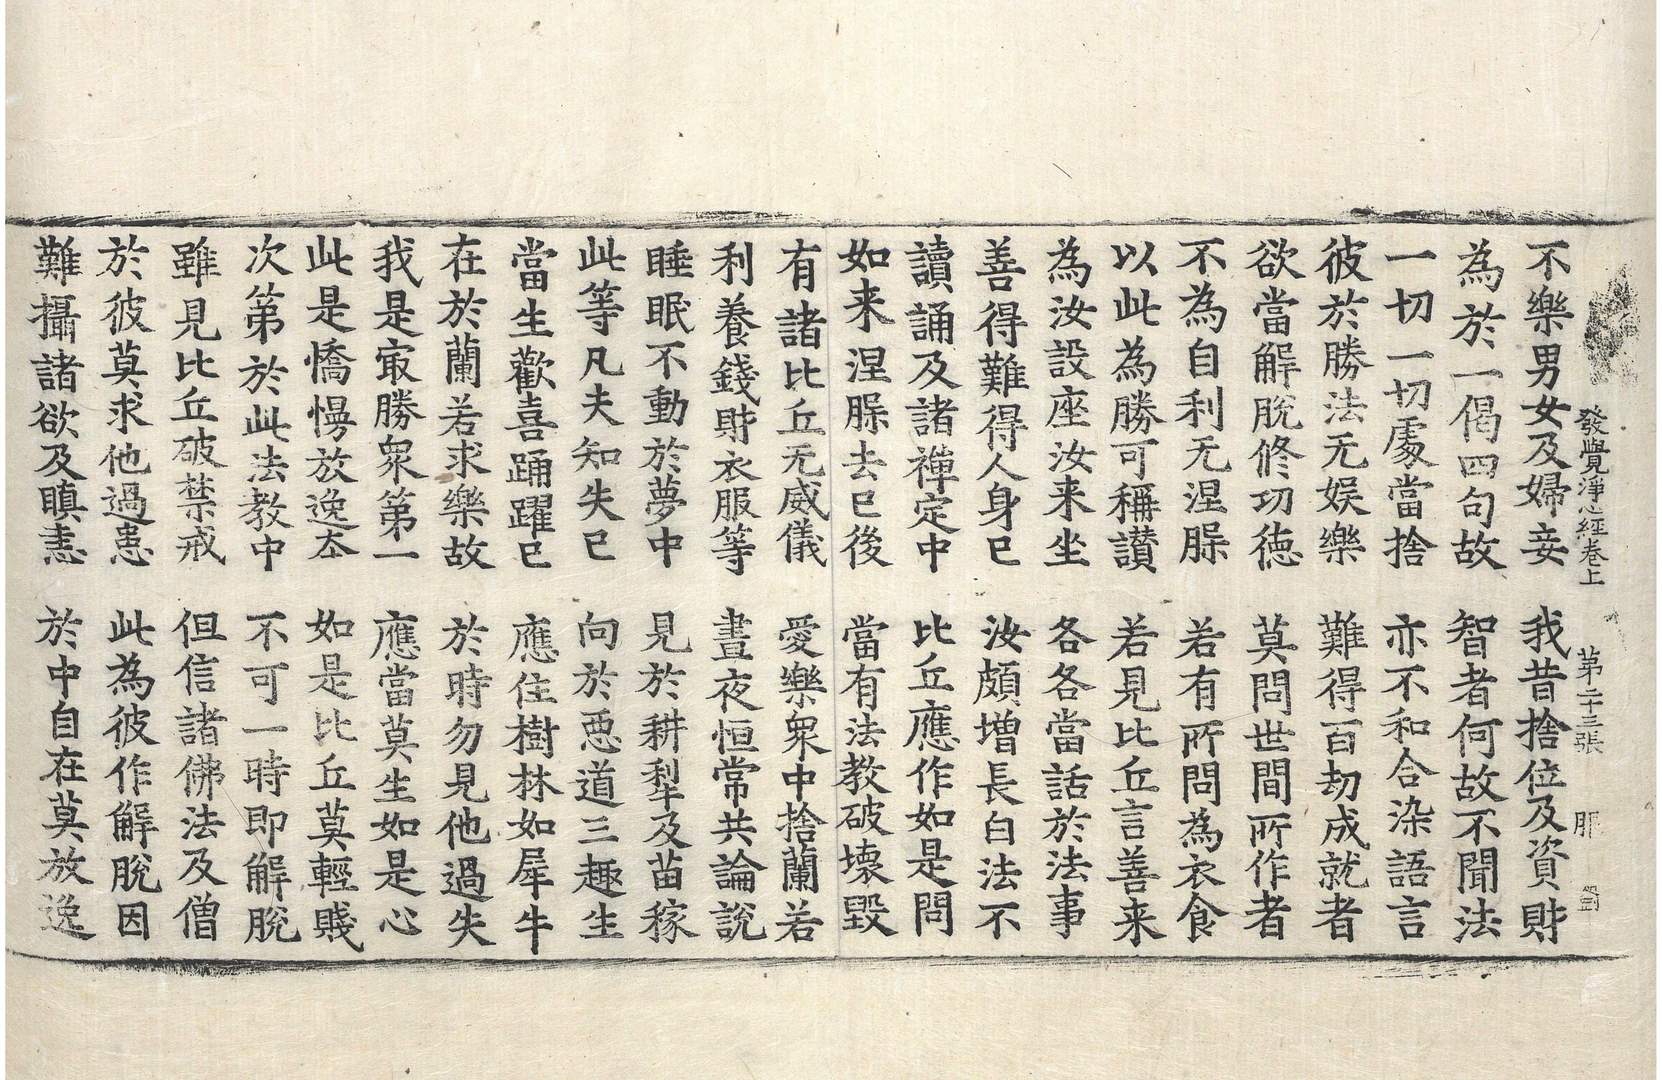 發覺淨心經卷上 第二十三張 服
不樂男女及婦妾 我昔捨位及資財
為於一偈四句故 智者何故不聞法
一切一切處當捨 亦不和合染語言
彼於勝法无娛樂 難得百劫成就者
欲當解脫修功徳 莫問世間所作者
不為自利无涅脲 若有所問為衣食
以此為勝可稱讃 若見比丘言善来
為汝設座汝来坐 各各當話於法事
善得難得人身已 汝頗増長白法不
讀誦及諸禅定中 比丘應作如是問
如来涅脲去已後 當有法教破壊毀
有諸比丘无威儀 愛樂衆中捨蘭若
利養錢財衣服等 晝夜恒常共論說
睡眠不動於夢中 見於耕犁及苗稼
此等凡夫知失已 向於惡道三趣生
當生歡喜踊躍已 應住樹林如犀牛
在於蘭若求樂故 於時勿見他過失
我是冣勝衆第一 應當莫生如是心
此是憍慢放逸本 如是比丘莫輕賤
次第於此法教中 不可一時即解脫
雖見比丘破禁戒 但信諸佛法及僧
於彼莫求他過患 此為彼作解脫因
難攝諸欲及瞋恚 於中自在莫放逸